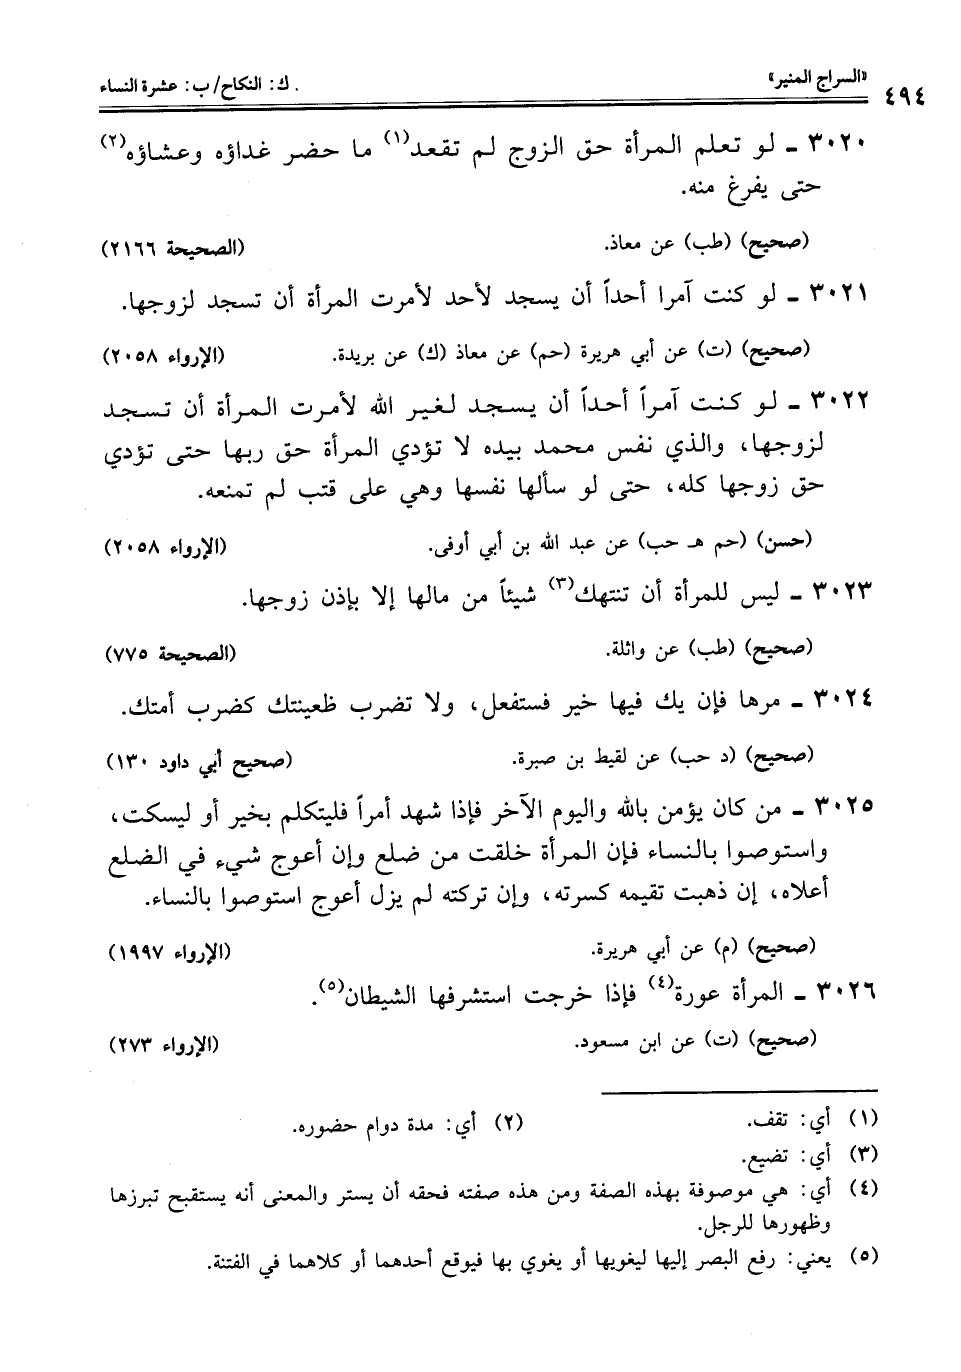 «السراج المنير»
ك: النكاح/ ب: عشرة النساء
٤٩٤
٣٠٢٠ ـ لو تعلم المرأة حق الزوج لم تقعد(١) ما حضر غداؤه وعشاؤه(٢)
حتى يفرغ منه.
(صحيح) (طب) عن معاذ. (الصحيحة ٢١٦٦)
٣٠٢١ ـ لو كنت آمرا أحداً أن يسجد لأحد لأمرت المرأة أن تسجد لزوجها.
(صحيح) (ت) عن أبي هريرة (حم) عن معاذ (ك) عن بريدة. (الإرواء ٢٠٥٨)
٣٠٢٢ ـ لو كنت آمراً أحداً أن يسجد لغير الله لأمرت المرأة أن تسجد
لزوجها، والذي نفس محمد بيده لا تؤدي المرأة حق ربها حتى تؤدي
حق زوجها كله، حتى لو سألها نفسها وهي على قتب لم تمنعه.
(حسن) (حم هـ حب) عن عبد الله بن أبي أوفى. (الإرواء ٢٠٥٨)
٣٠٢٣ ـ ليس للمرأة أن تنتهك(٣) شيئاً من مالها إلا بإذن زوجها.
(صحيح) (طب) عن واثلة. (الصحيحة ٧٧٥)
٣٠٢٤ ـ مرها فإن يك فيها خير فستفعل، ولا تضرب ظعينتك كضرب أمتك.
(صحيح) (د حب) عن لقيط بن صبرة. (صحيح أبي داود ١٣٠)
٣٠٢٥ ـ من كان يؤمن بالله واليوم الآخر فإذا شهد أمراً فليتكلم بخير أو ليسكت،
واستوصوا بالنساء فإن المرأة خلقت من ضلع وإن أعوج شيء في الضلع
أعلاه، إن ذهبت تقيمه كسرته، وإن تركته لم يزل أعوج استوصوا بالنساء.
(صحيح) (م) عن أبي هريرة. (الإرواء ١٩٩٧)
٣٠٢٦ ـ المرأة عورة(٤) فإذا خرجت استشرفها الشيطان(٥).
(صحيح) (ت) عن ابن مسعود. (الإرواء ٢٧٣)
(١) أي: تقف. (٢) أي: مدة دوام حضوره.
(٣) أي: تضيع.
(٤) أي: هي موصوفة بهذه الصفة ومن هذه صفته فحقه أن يستر والمعنى أنه يستقبح تبرزها
وظهورها للرجل.
(٥) يعني: رفع البصر إليها ليغويها أو يغوي بها فيوقع أحدهما أو كلاهما في الفتنة.